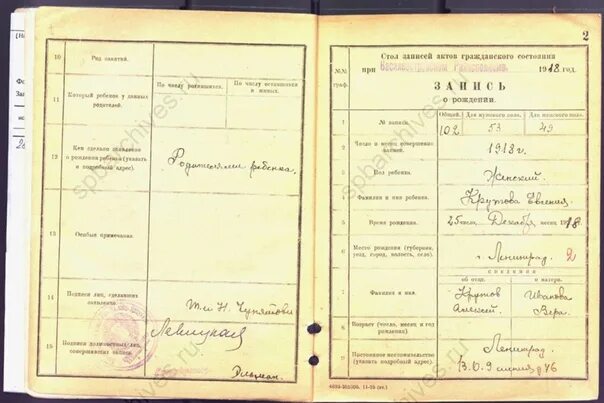 10
Род занятий.
По числу родившихся.
По числу оставшихся
в живых.
11
Который ребенок у данных
родителей.
12
Кем сделано заявление
о рождении ребенка (указать
и подробный адрес).
Родителями ребенка.
13
Особые примечания.
14
Подписи лиц, сделавших
заявление.
15
Подписи должностных лиц,
совершивших запись.
Левицкая
2
Стол записей актов гражданского состояния
№№
граф.
при
1918 год.
ЗАПИСЬ
о рождении.
1
№ записи.
Общий.
Для мужского пола.
Для женского пола.
102
53
49
2
Число и месяц совершения
записи.
1918 г.
3
Пол ребенка.
Женский
4
Фамилия и имя ребенка.
Крутова Евгения
5
Время рождения.
25 число, Декабря месяц 1918
6
Место рождения (губерния,
уезд, город, волость, село).
г. Ленинград.
2
сведения
об отце.
о матери.
7
Фамилия и имя.
Крутов
Алексей
Иванова
Вера.
8
Возраст (число, месяц и год
рождения).
9
Постоянное местожительство
(указать подробный адрес).
Ленинград.
В.О. 9 линия д 76
spbarchives.ru